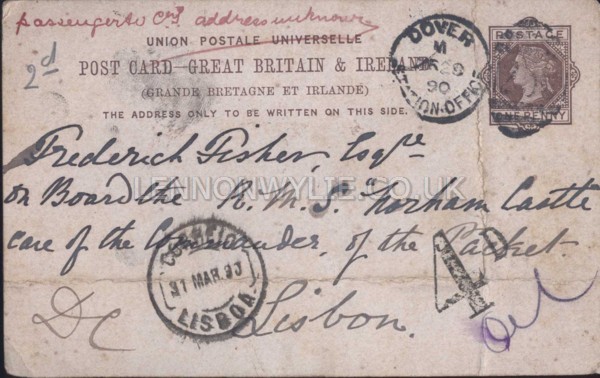 passenger to Cpt. address unknown
2d
UNION POSTALE UNIVERSELLE
POST CARD—GREAT BRITAIN & IRELAND
(GRANDE BRETAGNE ET IRLANDE)
THE ADDRESS ONLY TO BE WRITTEN ON THIS SIDE.
DOVER
M
28
90
STATION-OFFICE
POSTAGE
ONE PENNY
Frederich Fisher, Esqre
LENNONWYLIE.CO.UK
on Board the R. M. S. Norham Castle
care of the Commander, of the Packet.
CORREIO
31 MAR. 90
LISBOA
4
Lisbon.
DC